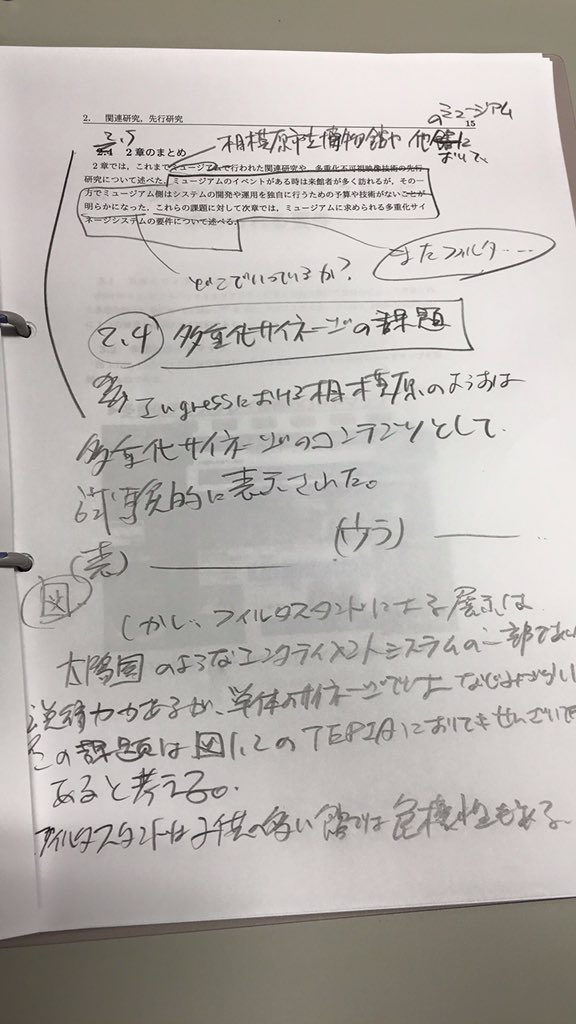 2. 関連研究，先行研究
15
のミュージアム
2.5
2.4 2章のまとめ
相模原市立博物館や 他館に
おいて、
2章では，これまでミュージアムで行われた関連研究や，多重化不可視映像技術の先行
研究について述べた．ミュージアムのイベントがある時は来館者が多く訪れるが，その一
方でミュージアム側はシステムの開発や運用を独自に行うための予算や技術がないことが
明らかになった．これらの課題に対して次章では，ミュージアムに求められる多重化サイ
ネージシステムの要件について述べる．
またフィルタ……
どこでいっているか?
2.4 多重化サイネージの課題
Ingressにおける相模原のようすは
多重化サイネージのコンテンツとして
試験的に表示された。
(表) (ウラ)
図
しかし、フィルタスタンドによる展示は
太陽園のようなエンタテイメントシステムの一部であれば
力があるが、単体のサイネージでは
この課題は図1,2のTEPIAにおいて
あると考える。
フィルタスタンドは子供の多い館では危機性もある。